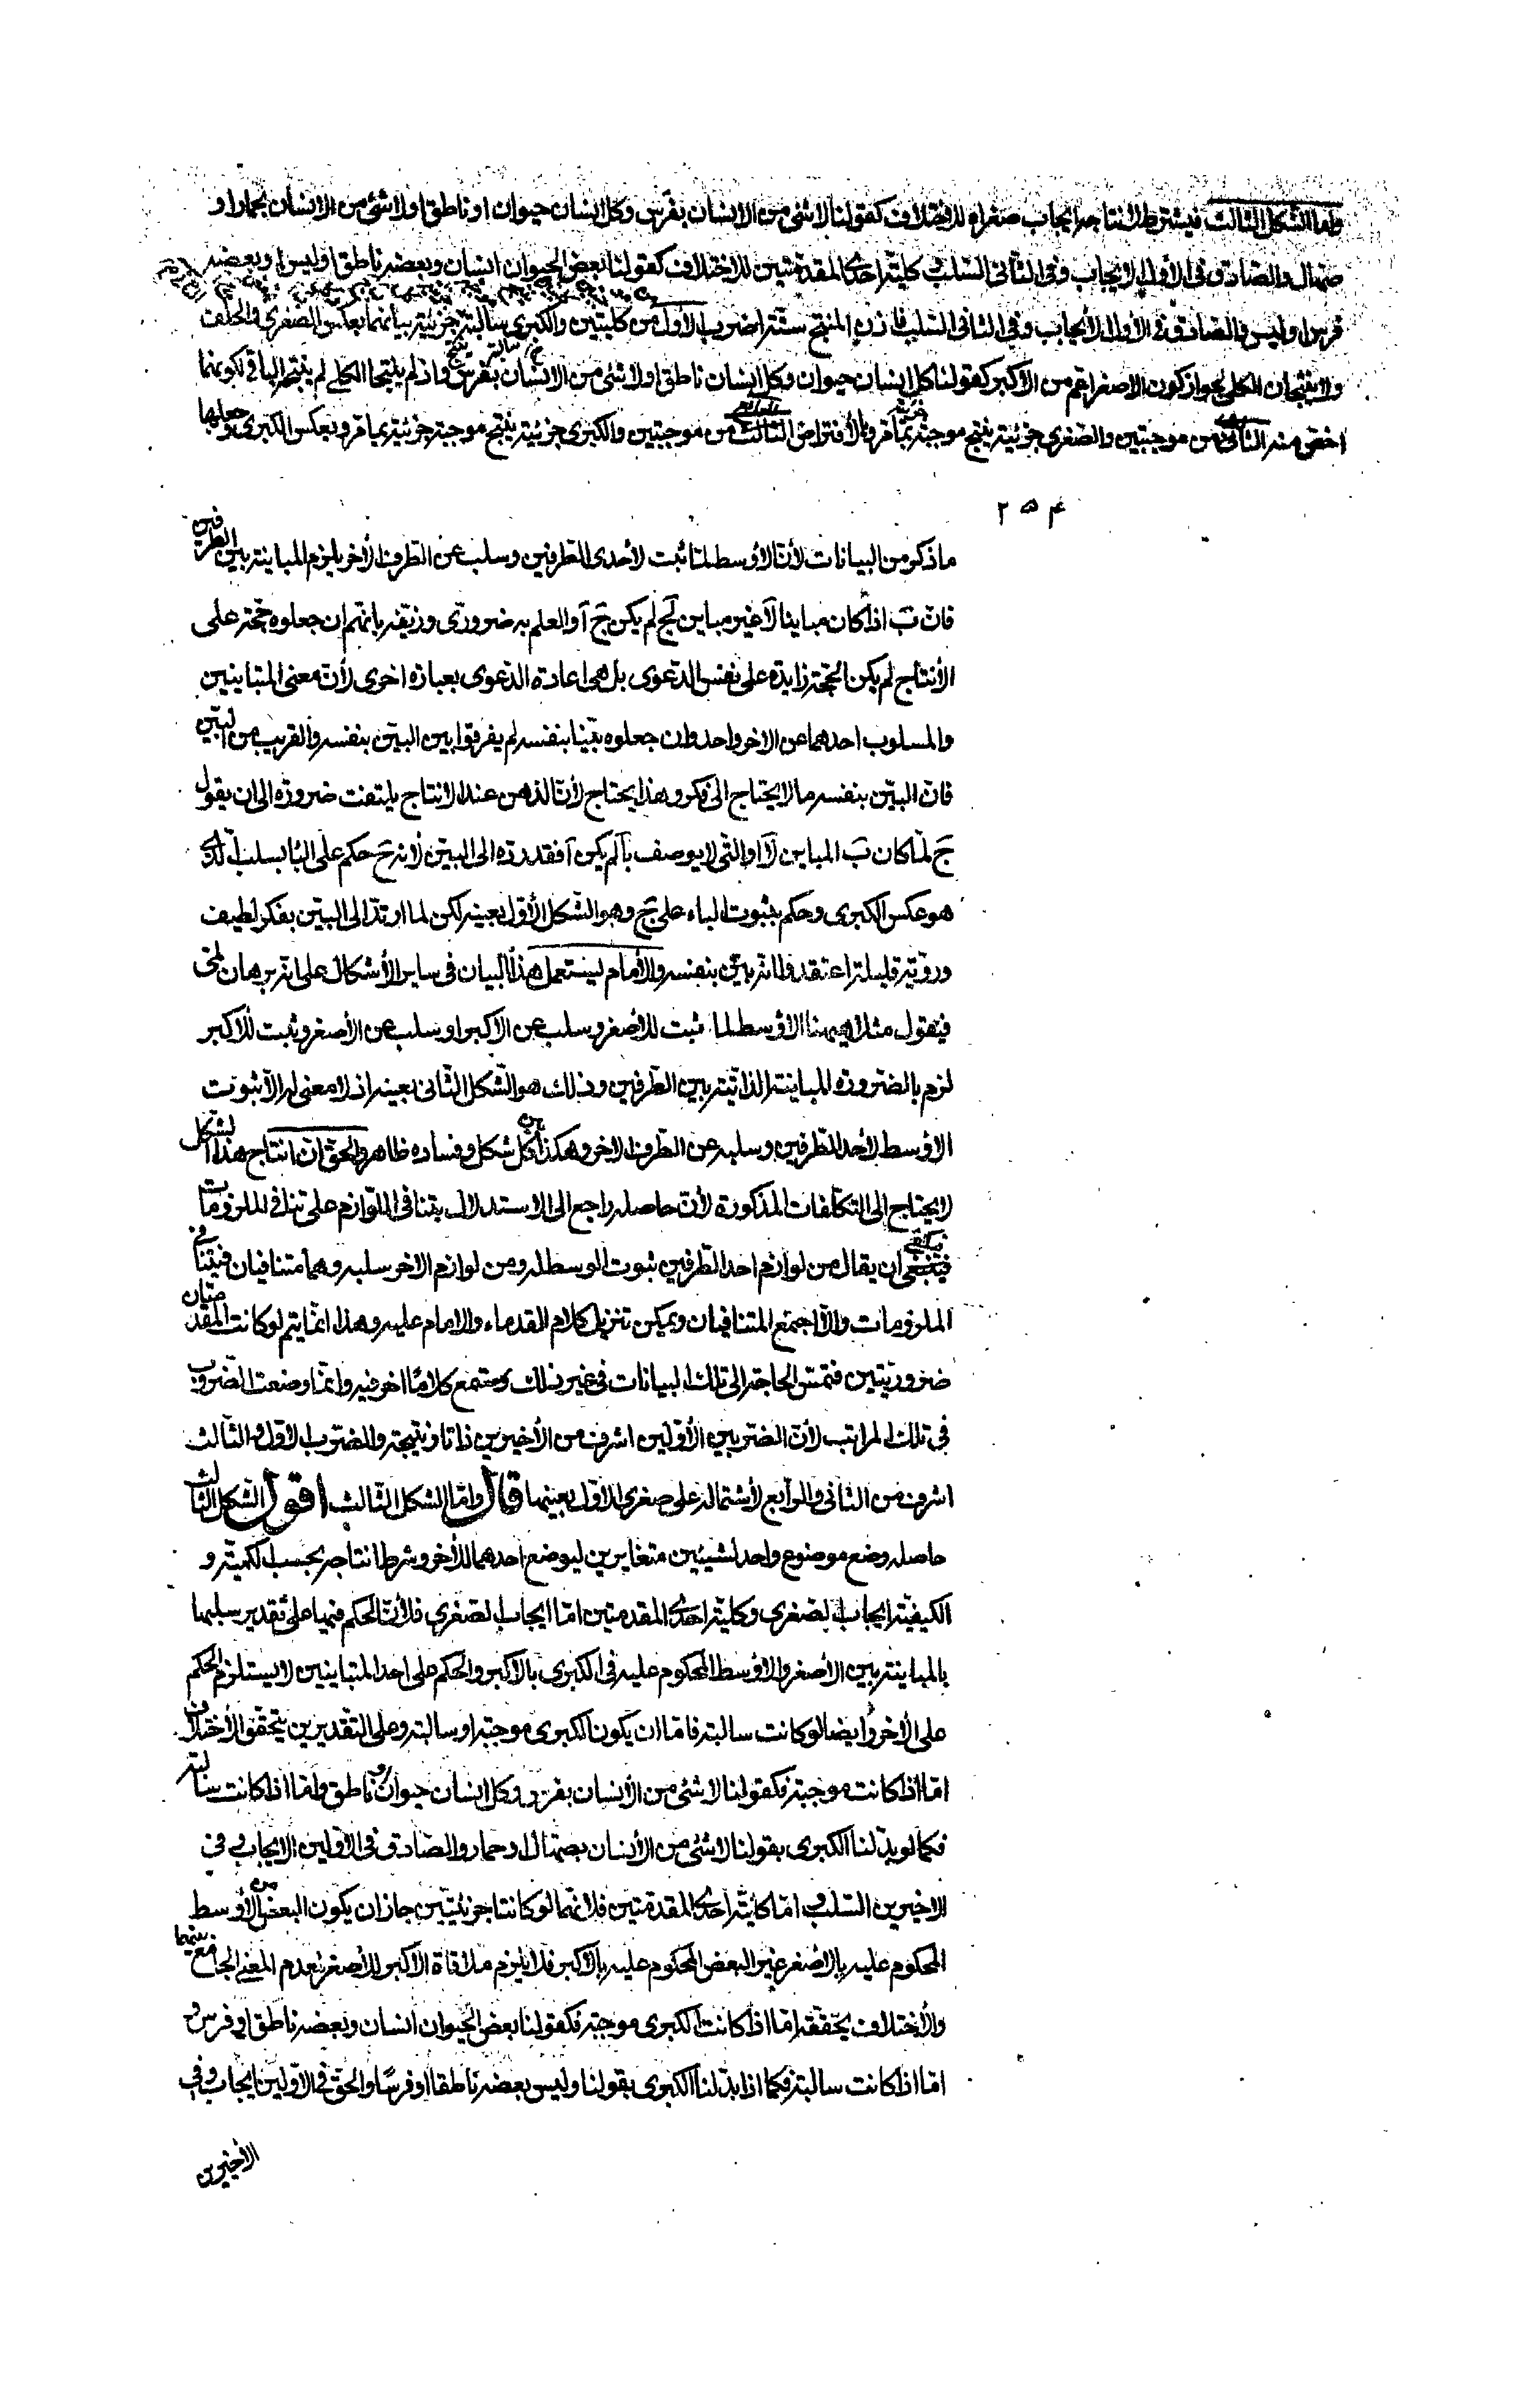 واما الشكل الثالث فيشترط لانتاجه ايجاب صغراه للاختلاف كقولنا لا شئ من الانسان بفرس وكل انسان حيوان او ناطق اولا شئ من الانسان بحمار او
صهال والصادق فى الأول الايجاب وفى الثانى السلب وكلية احدى المقدمتين للاختلاف كقولنا بعض الحيوان انسان وبعضه ناطق او ليس او بعضه
فرس او ليس والصادق فى الأول الايجاب وفى الثانى السلب المنتج ستة اضرب الأول من كليتين والكبرى سالبة جزئية بيانهما بعكس الصغرى والخلف
ولا ينتجان الكلى لجواز كون الاصغر اعم من الأكبر كقولنا كل انسان حيوان وكل انسان ناطق اولا شئ من الانسان بفرس واذ لم ينتجا الكلى لم ينتجه الباقى لكونهما
اخص منه الثانى من موجبتين والصغرى جزئية ينتج موجبة جزئية بما مر وبالأفتراض الثالث من موجبتين والكبرى جزئية ينتج موجبة جزئية بما مر وبعكس الكبرى وجعلها
٢٥۴
ما ذكر من البيانات لأن الأوسط لما ثبت لأحدى الطرفين وسلب عن الطرف الأخر يلزم المباينة بين الطرفين
فان بَ اذا كان مباينا لآ غير مباين لجَ لم يكن جَ آ والعلم به ضرورى وزيفه بانهم ان جعلوه حجة على
الأنتاج لم يكن الحجة زايدة على نفس الدعوى بل هى اعادة الدعوى بعبارة اخرى لأن معنى المتباينين
والمسلوب احدهما عن الاخر واحد وان جعلوه بيّنا بنفسه لم يفرقوا بين البيّن بنفسه والقريب من البيّن
فان البيّن بنفسه ما لا يحتاج الى فكر وهذا يحتاج لأن الذهن عند الانتاج يلتفت ضرورة الى ان يقول
جَ لما كان بَ المباين لآ او التى لا يوصف بآ لم يكن آ فقد رده الى البيّن لأنه حَ حكم على الباء بسلب آ الذى
هو عكس الكبرى وحكم بثبوت الباء على جَ وهو الشكل الأول بعينه لكن لما ارتد الى البيّن بفكر لطيف
وروية قليلة اعتقدوا انه بيّن بنفسه والأمام يستعمل هذا البيان فى ساير الأشكال على انه برهان لمى
فيقول مثلا ههنا الأوسط لما ثبت للأصغر وسلب عن الاكبر او سلب عن الأصغر وثبت للاكبر
لزم بالضرورة المباينة الذاتية بين الطرفين وذلك هو الشكل الثانى بعينه اذ لا معنى له الا ثبوت
الأوسط لأحد الطرفين وسلبه عن الطرف الاخر وهكذا فى كل شكل وفساده ظاهر والحق ان انتاج هذا الشكل
لا يحتاج الى التكلفات المذكورة لأن حاصله راجع الى الاستدلال بتنافى اللوازم على تنافى الملزومات
فينبغى ان يقال من لوازم احد الطرفين ثبوت الوسط له ومن لوازم الاخر سلبه وهما متنافيان فيتنافى
الملزومات والا اجتمع المتنافيان ويمكن تنزيل كلام القدماء والامام عليه وهذا انما يتم لو كانت المقدمتان
ضروريتين فتمس الحاجة الى تلك البيانات فى غير ذلك وستسمع كلامًا اخر فيه وانما وضعت الضروب
فى تلك المراتب لأن الضربين الأولين اشرف من الأخيرين ذاتا ونتيجة والضرب الاول والثالث
اشرف من الثانى والرابع لأشتماله على صغرى الاول بعينها قال واما الشكل الثالث اقول الشكل الثالث
حاصله وضع موضوع واحد لشيئين متغايرين ليوضع احدهما للأخر وشرط انتاجه بحسب الكمية و
الكيفية ايجاب الصغرى وكلية احدى المقدمتين اما ايجاب الصغرى فلأن الحكم فيها على تقدير سلبها
بالمباينة بين الأصغر والاوسط المحكوم عليه فى الكبرى بالاكبر والحكم على احد المتباينين لا يستلزم الحكم
على الأخر وأيضا لو كانت سالبة فاما ان يكون الكبرى موجبة او سالبة وعلى التقديرين يتحقق الأختلاف
اما اذا كانت موجبة فكقولنا لا شئ من الأنسان بفرس وكل انسان حيوان او ناطق واما اذا كانت سالبة
فكما لو بدلنا الكبرى بقولنا لا شئ من الأنسان بصهال او حمار والصادق فى الاولين الايجاب وفى
الاخيرين السلب واما كلية احدى المقدمتين فلانهما لو كانتا جزئيتين جاز ان يكون البعض من الأوسط
المحكوم عليه بالأصغر غير البعض المحكوم عليه بالأكبر فلا يلزم ملاقاة الاكبر للأصغر لعدم المعنى الجامع بينهما
والأختلاف يحققه اما اذا كانت الكبرى موجبة فكقولنا بعض الحيوان انسان وبعضه ناطق او فرس و
اما اذا كانت سالبة فكما اذا بدلنا الكبرى بقولنا وليس بعضه ناطقا او فرسًا والحق فى الاولين ايجاب وفى
الأخيرين